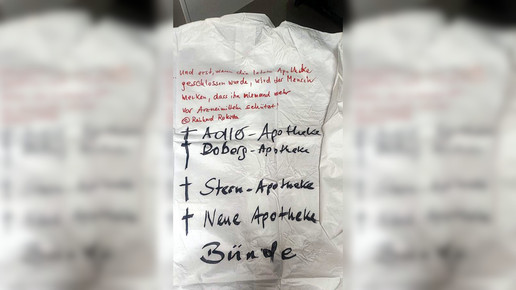 und erst, wenn die letzte Apotheke
geschlossen wurde, wird der Mensch
merken, dass ihn niemand mehr
vor Arzneimitteln schützt!
© Reinhard Rokitta
† Adler-Apotheke
† Doberg-Apotheke
† Stern-Apotheke
† Neue Apotheke
Bünde